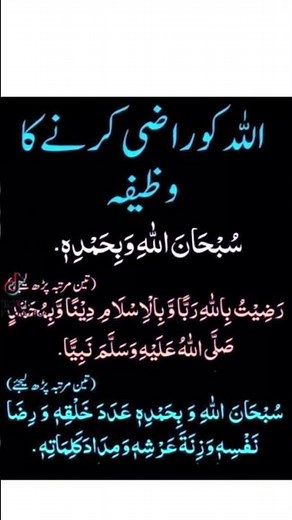 اللہ کو راضی کرنے کا
وظیفہ
سُبْحَانَ اللهِ وَبِحَمْدِهٖ.
(تین مرتبہ پڑھ لیجئے)
رَضِيْتُ بِاللهِ رَبًّا وَّ بِالْاِسْلَامِ دِيْنًا وَّبِمُحَمَّدٍ
صَلَّى اللهُ عَلَيْهِ وَسَلَّمَ نَبِيًّا.
(تین مرتبہ پڑھ لیجئے)
سُبْحَانَ اللهِ وَ بِحَمْدِهٖ عَدَدَ خَلْقِهٖ وَ رِضَا
نَفْسِهٖ وَزِنَةَ عَرْشِهٖ وَمِدَادَ كَلِمَاتِهٖ.